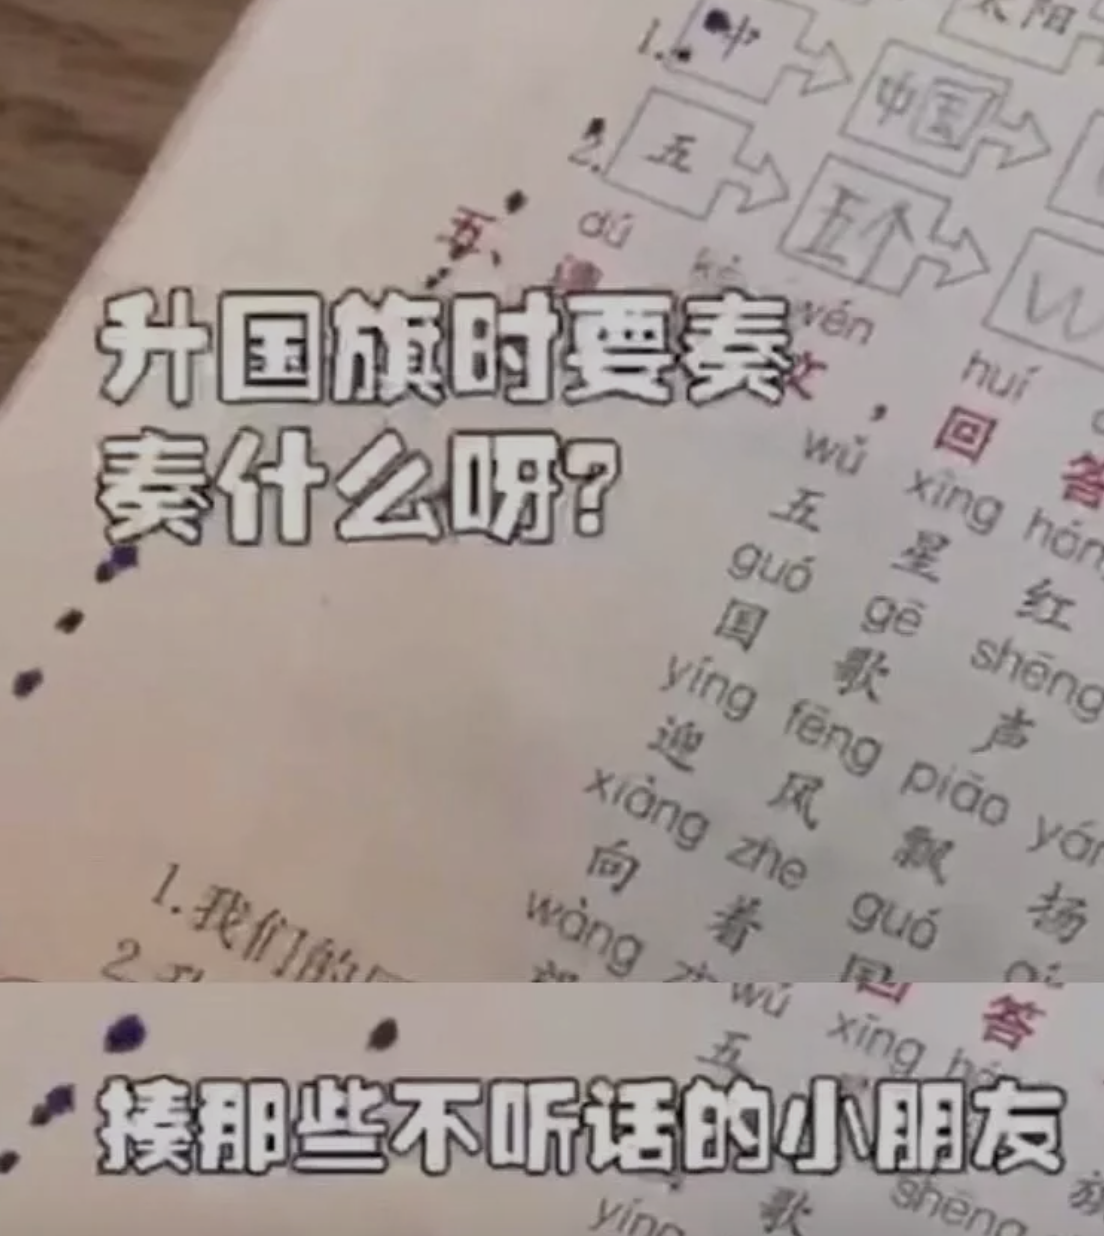 太阳
1. 中 中国
2. 五 五个
dú wén huí
五、读 文，回答
升国旗时要奏
奏什么呀？
wǔ xīng
五星红
guó gē shēng
国歌声
yíng fēng piāo
迎风飘扬
xiàng zhe guó
向着国
wàng
1.我们的
2.
wǔ xīng
答
五
揍那些不听话的小朋友
shēng
歌